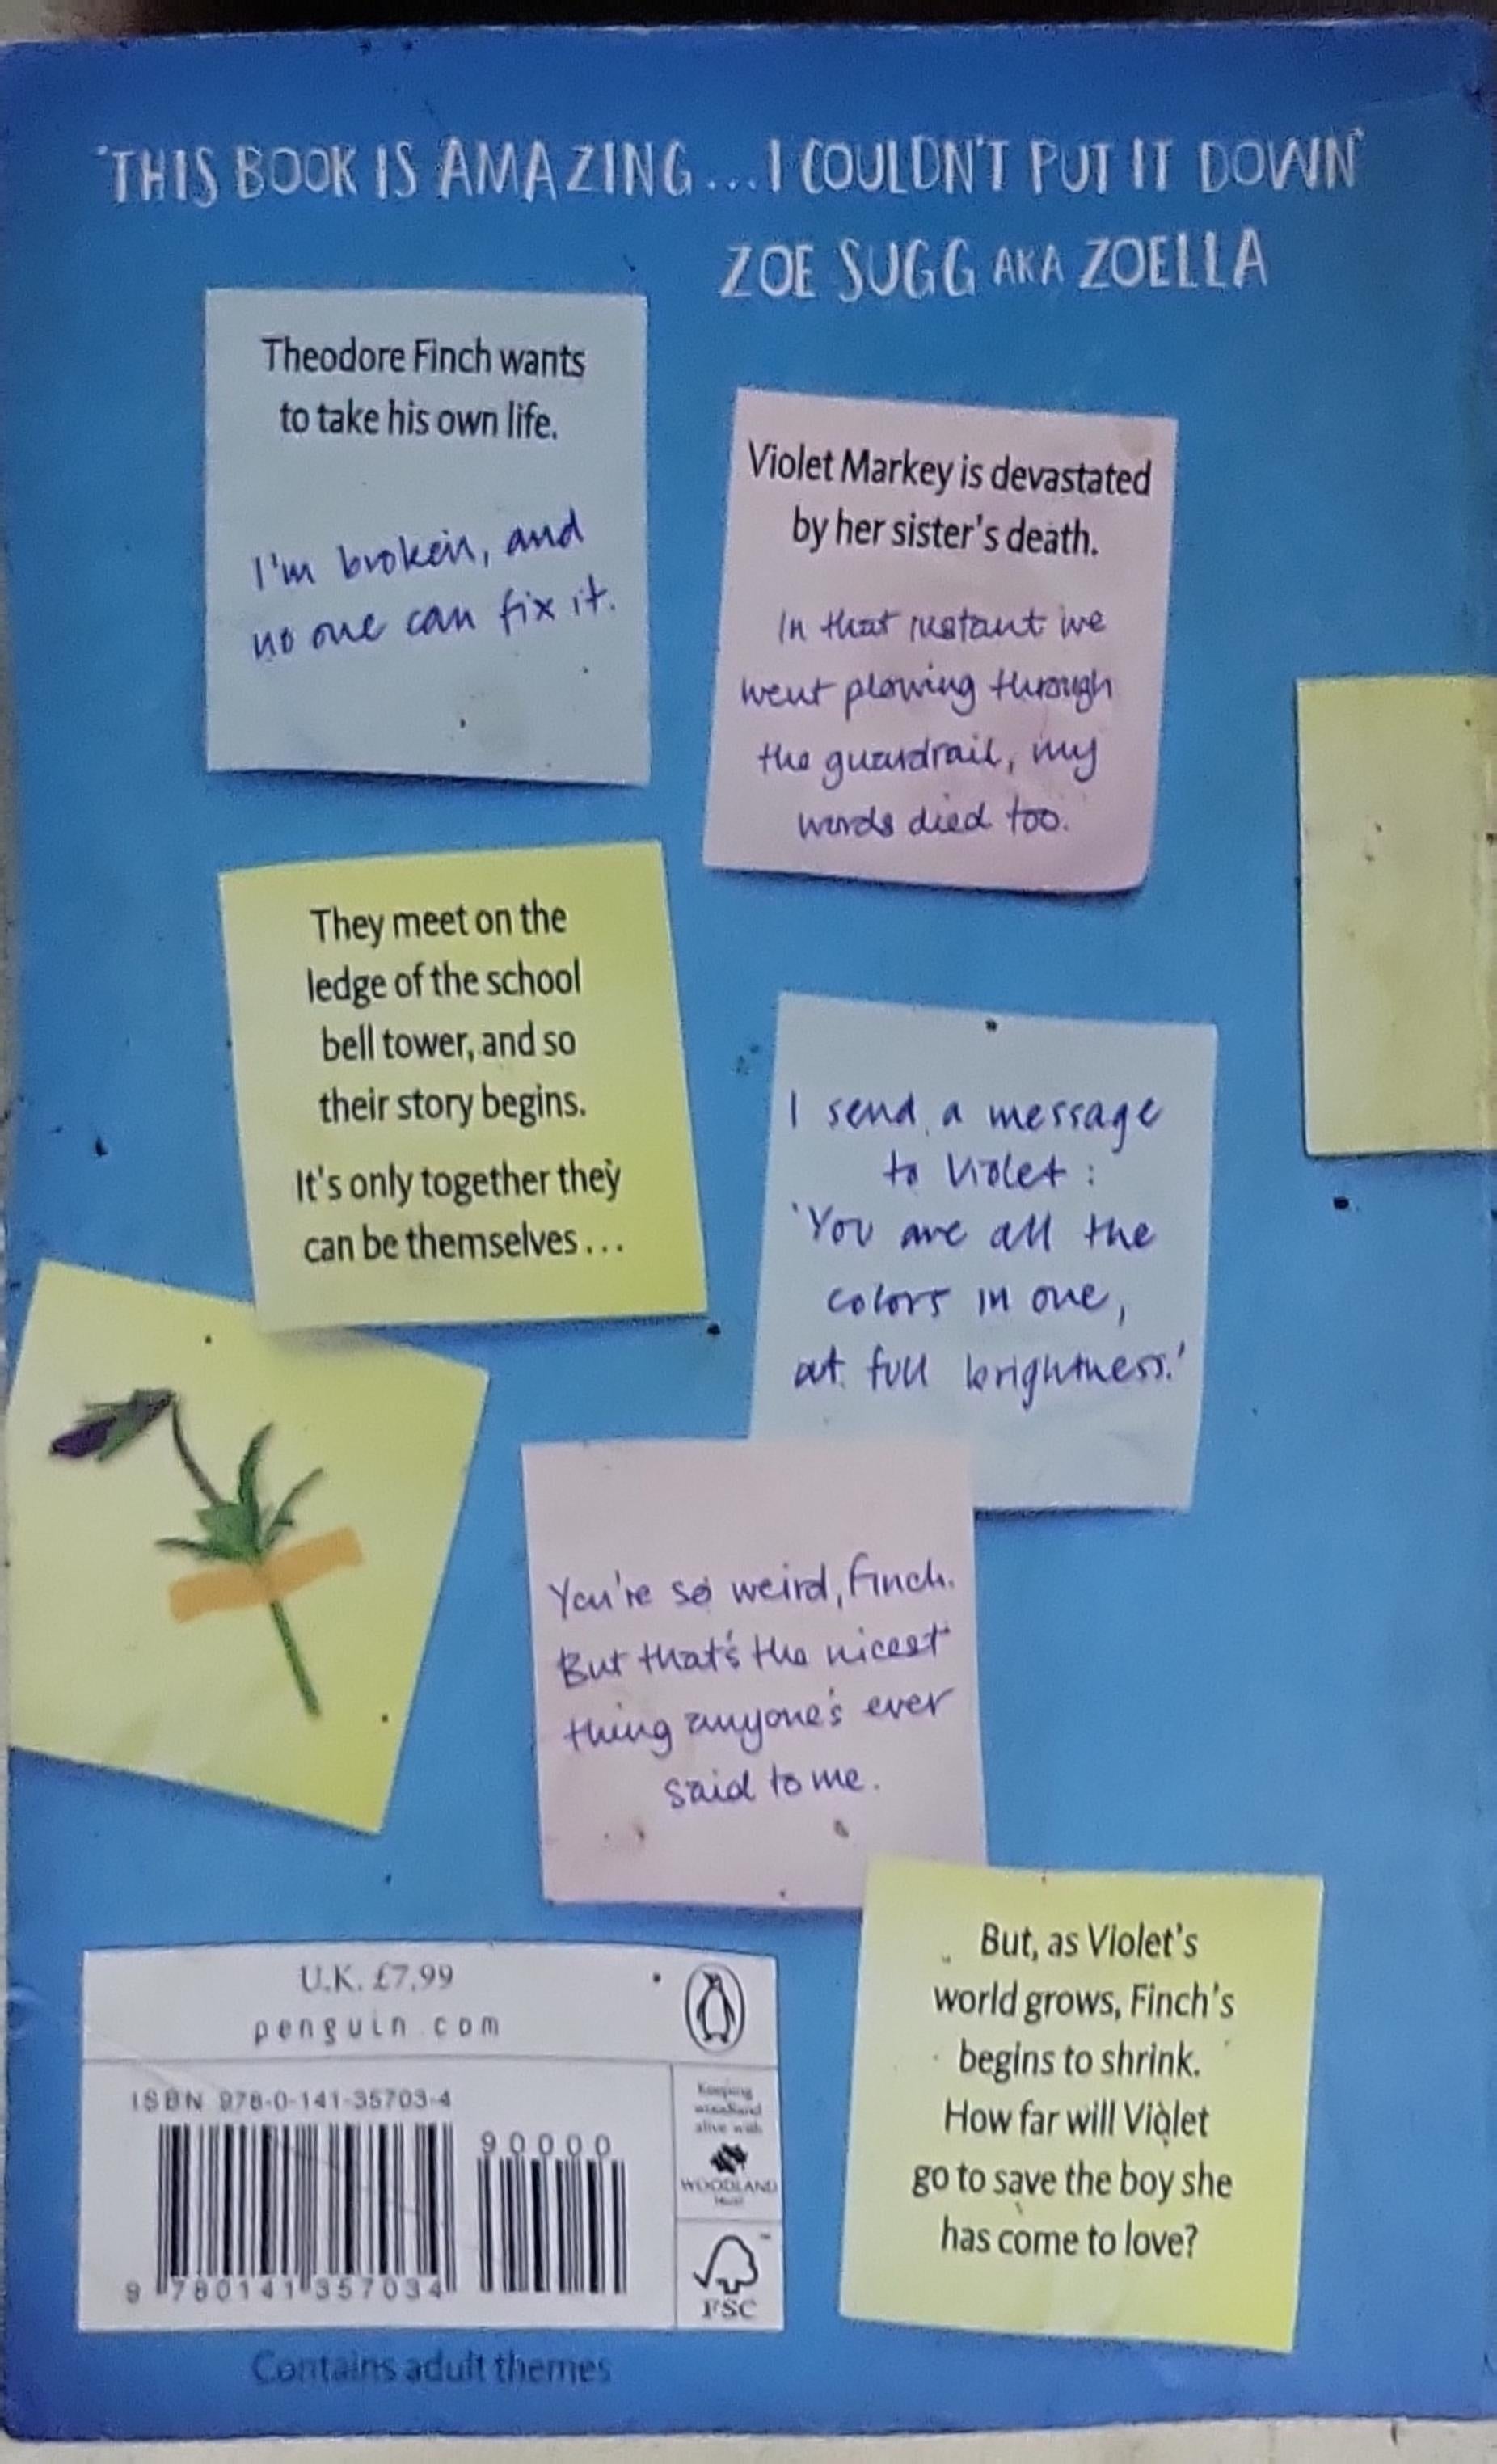 'THIS BOOK IS AMAZING...I COULDN'T PUT IT DOWN'
ZOE SUGG AKA ZOELLA
Theodore Finch wants
to take his own life.
I'm broken, and
no one can fix it.
Violet Markey is devastated
by her sister's death.
In that instant we
went plowing through
the guardrail, my
words died too.
They meet on the
ledge of the school
bell tower, and so
their story begins.
It's only together they
can be themselves...
I send a message
to Violet:
'You are all the
colors in one,
at full brightness.'
You're so weird, Finch.
But that's the nicest
thing anyone's ever
said to me.
But, as Violet's
world grows, Finch's
begins to shrink.
How far will Violet
go to save the boy she
has come to love?
U.K. £7.99
penguin.com
ISBN 978-0-141-35703-4
90000
9 780141 357034
Keeping
woodland
alive with
WOODLAND
FSC
Contains adult themes